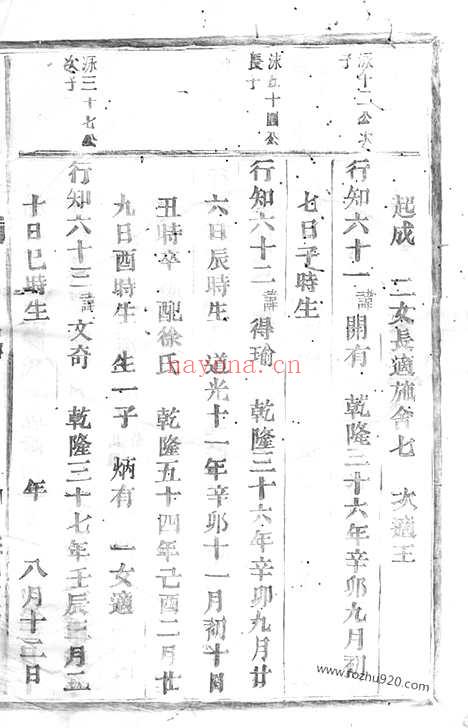 起成 二女長適施舍七 次適王
泳十二公次子
行知六十一諱開有 乾隆三十六年辛卯九月初
七日子時生
泳五十四公長子
行知六十二諱得瑜 乾隆三十六年辛卯九月廿
六日辰時生 道光十一年辛卯十一月初十日
丑時卒 配徐氏 乾隆五十四年己酉二月廿
九日酉時生 生一子 炳有 一女適
泳三十七公次子
行知六十三諱文奇 乾隆三十七年壬辰三月二
十日巳時生 年 八月十三日
hayona.cn
www.fozhu920.com